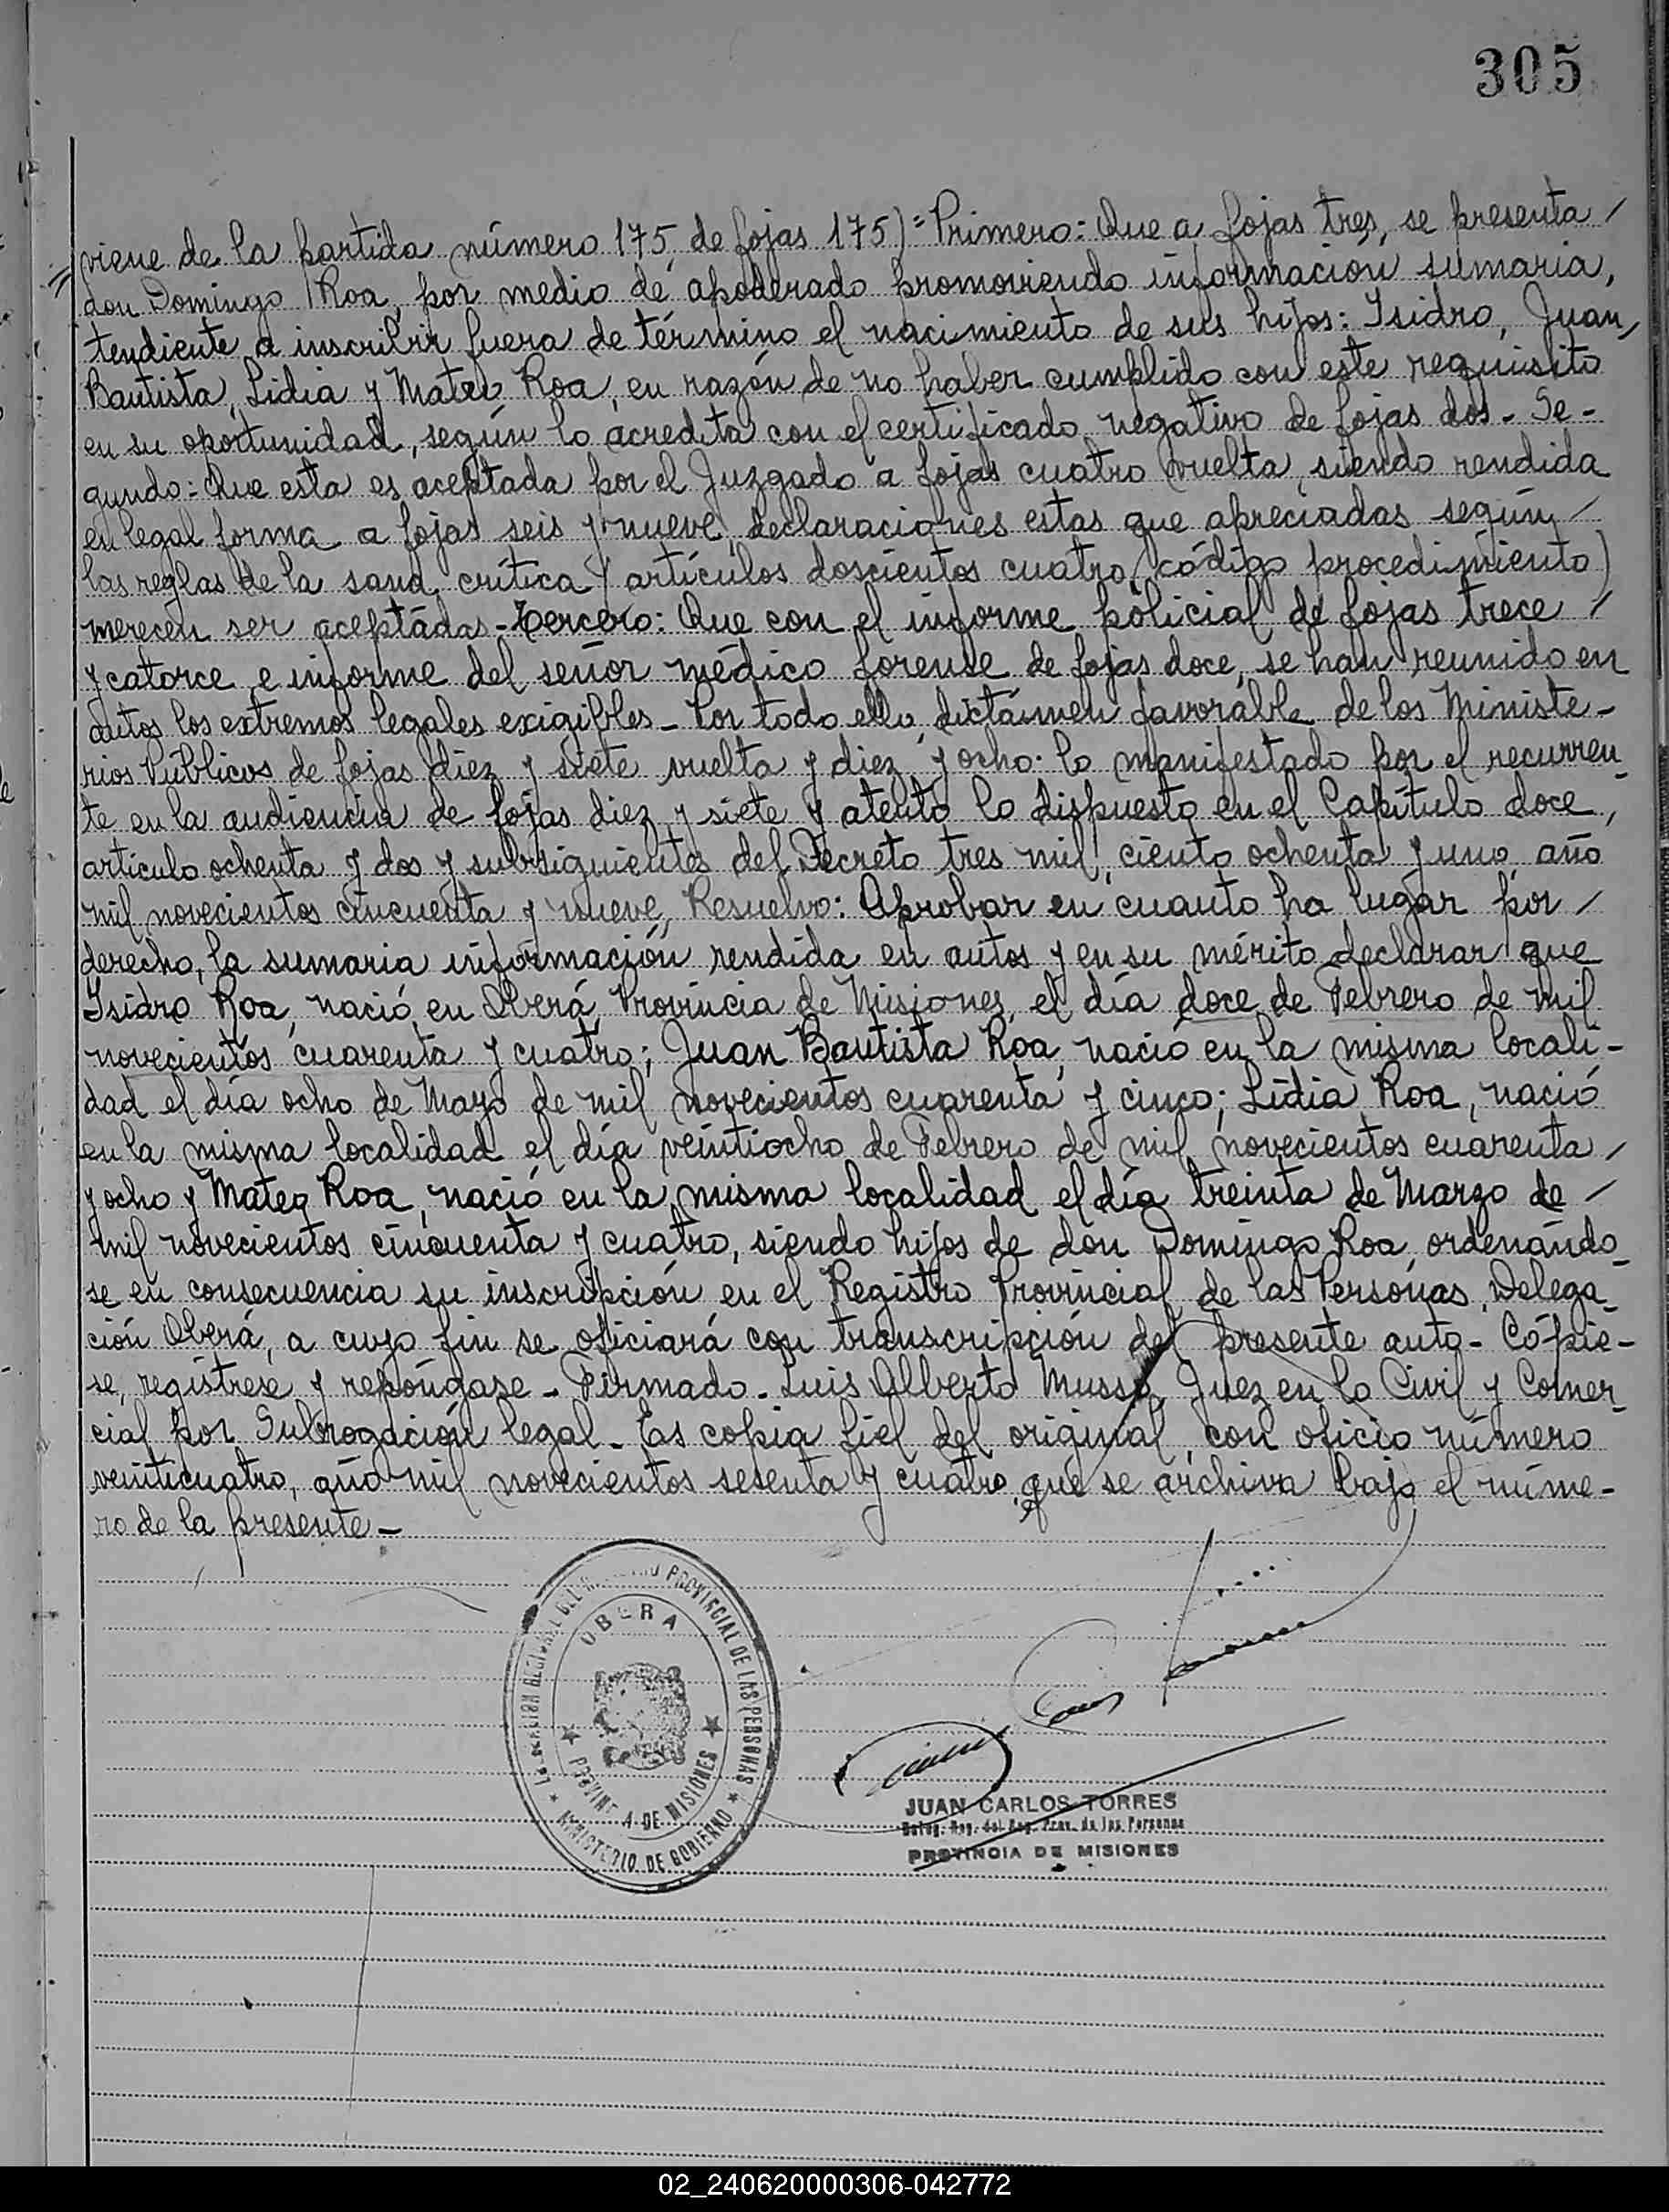 305
viene de la partida número 175, de fojas 175)= Primero: Que a fojas tres, se presenta /
don Domingo Roa, por medio de apoderado promoviendo información sumaria,
tendiente a inscribir fuera de término el nacimiento de sus hijos: Isidro, Juan /
Bautista, Lidia y Mateo Roa, en razón de no haber cumplido con este requisito
en su oportunidad, según lo acredita con el certificado negativo de fojas dos - Se-
gundo: Que esta es aceptada por el Juzgado a fojas cuatro vuelta, siendo rendida
en legal forma a fojas seis y nueve, declaraciones estas que apreciadas según /
las reglas de la sana crítica (artículos doscientos cuatro, código procedimiento)
merecen ser aceptadas - Tercero: Que con el informe policial de fojas trece /
y catorce e informe del señor médico forense de fojas doce, se han reunido en
autos los extremos legales exigibles - Por todo ello, dictámen favorable de los Ministe-
rios Públicos de fojas diez y siete vuelta y diez y ocho: lo manifestado por el recurren-
te en la audiencia de fojas diez y siete y atento lo dispuesto en el Capítulo doce,
artículo ochenta y dos y subsiguientes del Decreto tres mil ciento ochenta y uno, año
mil novecientos cincuenta y nueve, Resuelvo: Aprobar en cuanto ha lugar por /
derecho, la sumaria información rendida en autos y en su mérito declarar que
Isidro Roa, nació en Oberá, Provincia de Misiones, el día doce de Febrero de mil
novecientos cuarenta y cuatro; Juan Bautista Roa, nació en la misma locali-
dad el día ocho de Mayo de mil novecientos cuarenta y cinco; Lidia Roa, nació
en la misma localidad el día veintiocho de Febrero de mil novecientos cuarenta /
y ocho y Mateo Roa, nació en la misma localidad el día treinta de Marzo de /
mil novecientos cincuenta y cuatro, siendo hijos de don Domingo Roa ordenándo-
se en consecuencia su inscripción en el Registro Provincial de las Personas, Delega-
ción Oberá, a cuyo fin se oficiará con transcripción del presente auto - Cópie-
se, regístrese y repóngase - Firmado - Luis Alberto Musso, Juez en lo Civil y Comer-
cial por Subrogación legal - Es copia fiel del original, con oficio número
veinticuatro, año mil novecientos sesenta y cuatro, que se archiva bajo el núme-
ro de la presente -
PROVINCIAL DE LAS PERSONAS
OBERA
DE MISIONES
MINISTERIO DE GOBIERNO
JUAN CARLOS TORRES
Deleg. Reg. del Reg. Prov. de las Personas
PROVINCIA DE MISIONES
02_240620000306-042772